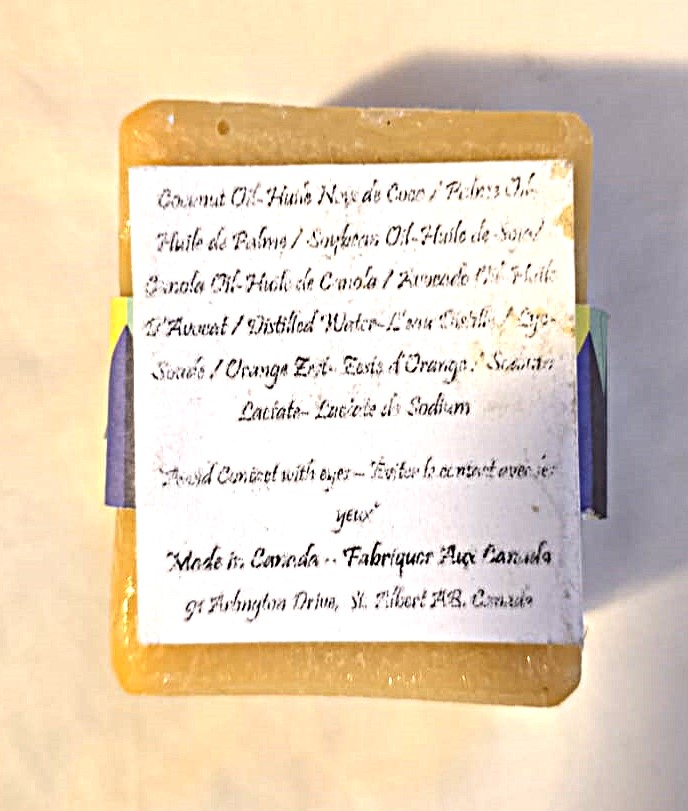 Coconut Oil-Huile Noix de Coco / Palms Oil-
Huile de Palme / Soybean Oil-Huile de Soja/
Canola Oil-Huile de Canola / Avocado Oil-Huile
D'Avocat / Distilled Water-L'eau Distille / Lye-
Soude / Orange Zest- Zeste d'Orange / Sodium
Lactate- Lactate de Sodium
"Avoid Contact with eyes- Eviter le contact avec les
yeux"
"Made in Canada -- Fabriquer Aux Canada
91 Arlington Drive, St. Albert AB. Canada